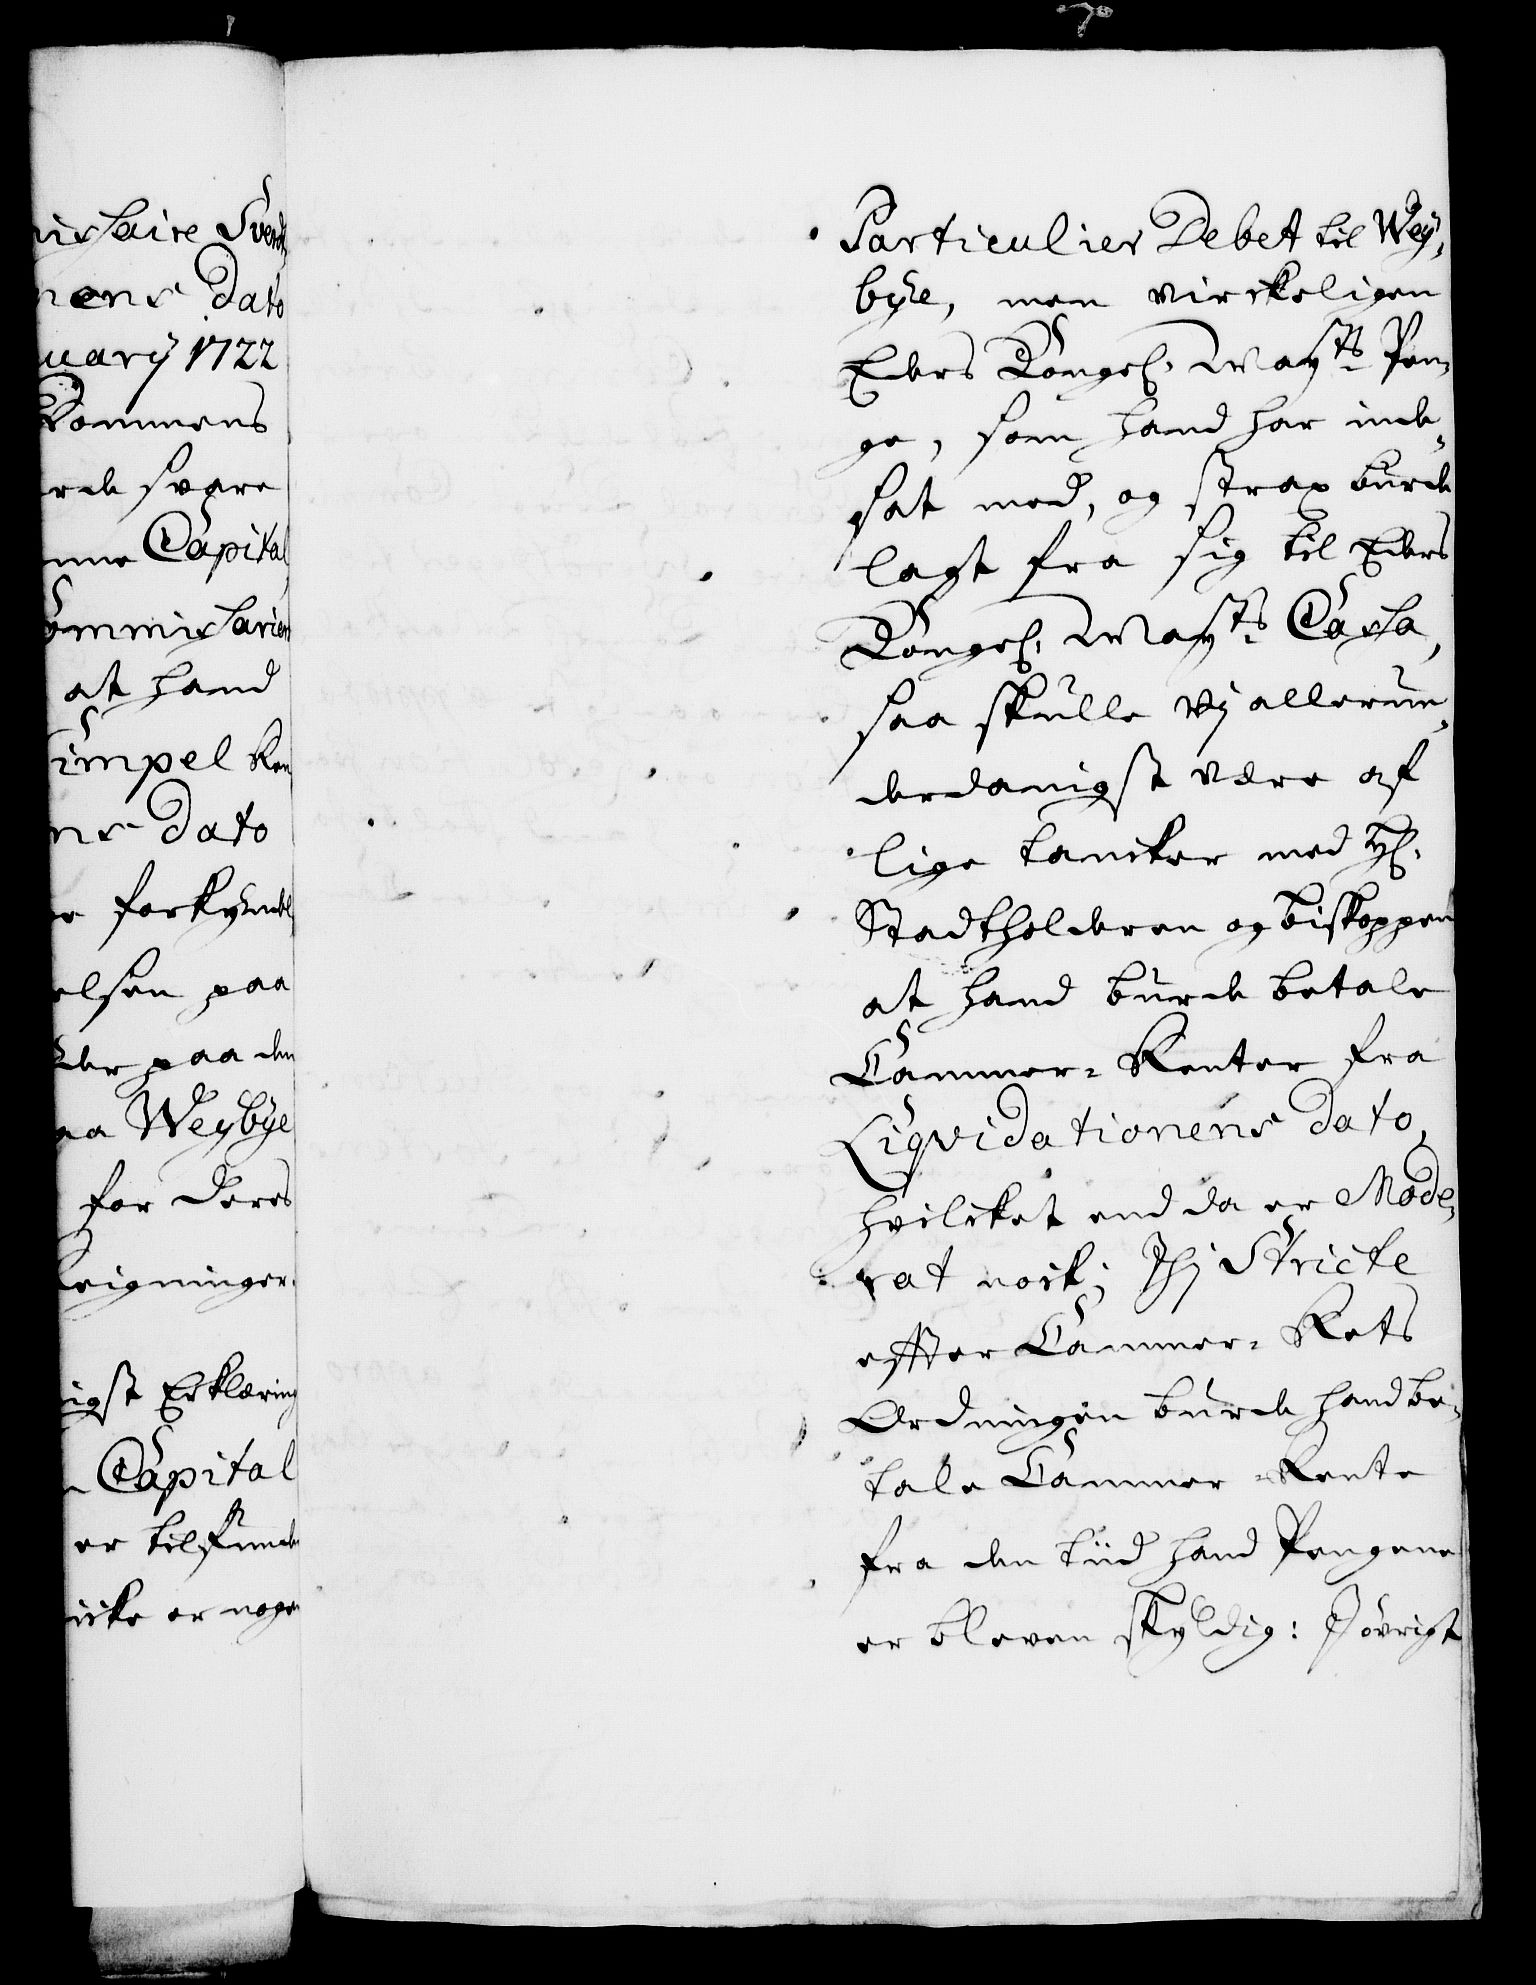 missaire Sverd
nens Dato
uarÿ 1722
Kommens
rde svare
nne Capital
ommissarien
at hand
Simpel Ren
ns Dato
e forkÿndel
elsen paa
der paa den
aa Weybÿe
for deres
eigninger.
igst Erklæring
Capital
er tilfunde
icke er noge
Particulier Debet til Weÿ,
bÿe, men virckeligen
Eders Kongel: Mayts Pen,
ge, som hand har inde,
sat med, og strax burde
lagt fra sig til Eders
Kongel: Mayts Cassa,
saa skulle vj allerun,
derdanigst være af
lige tancker med Hl:
Stadtholderen og biskoppen
at hand burde betale
Cammer-Renter fra
Liqvidationens Dato,
hvilcket end da er Mode,
rat nock; Thj Stricte
effter Cammer-Rets
Ordningen burde hand be,
tale Cammer-Rente
fra den tiid hand Pengene
er bleven skyldig: J øvrigt